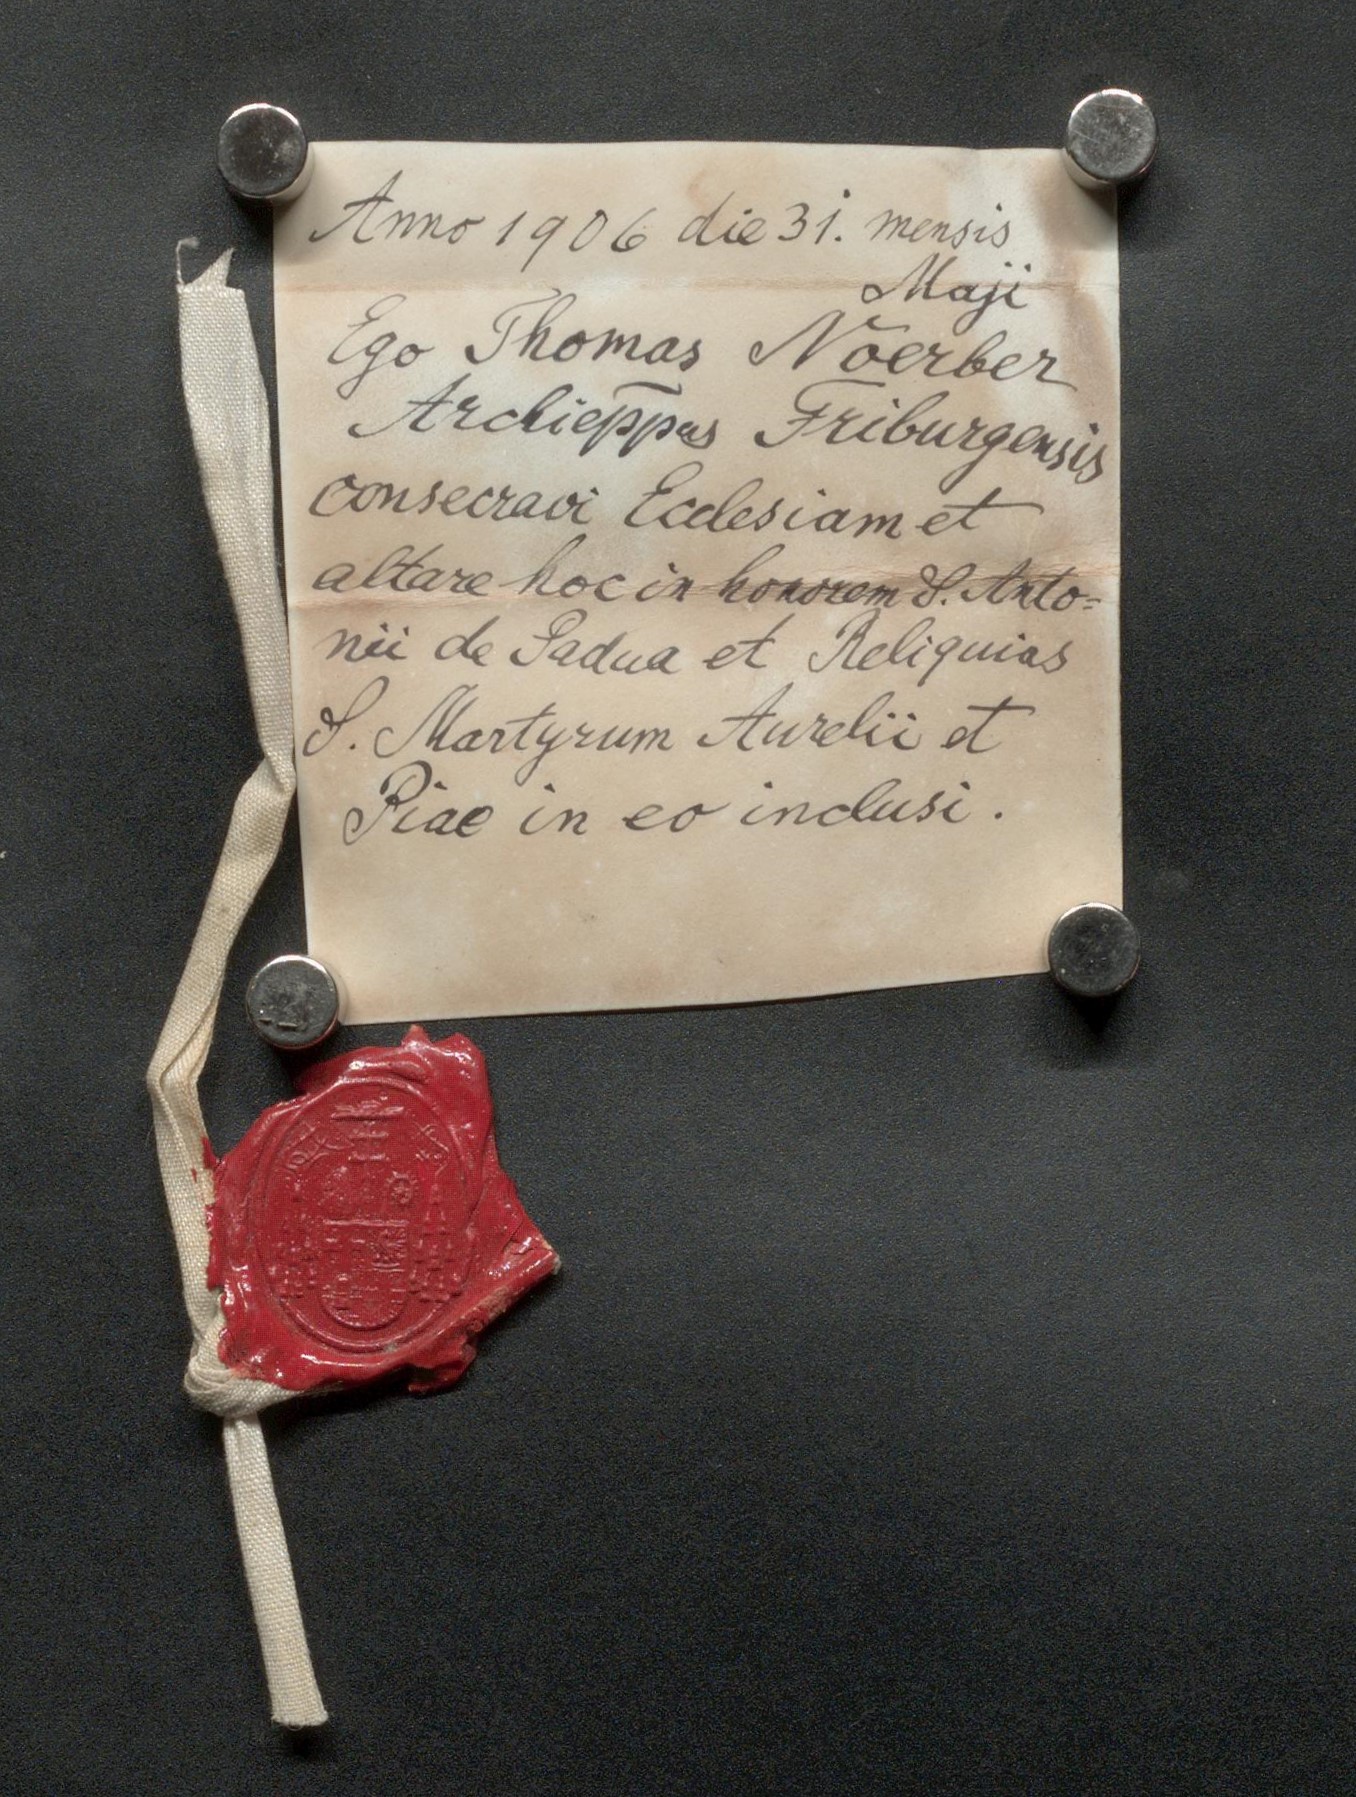 Anno 1906 die 31. mensis
Maji
Ego Thomas Nöerber
Archieppus Friburgensis
consecravi Ecclesiam et
altare hoc in honorem S. Anto=
nii de Padua et Reliquias
S. Martyrum Aurelii et
Piae in eo inclusi.